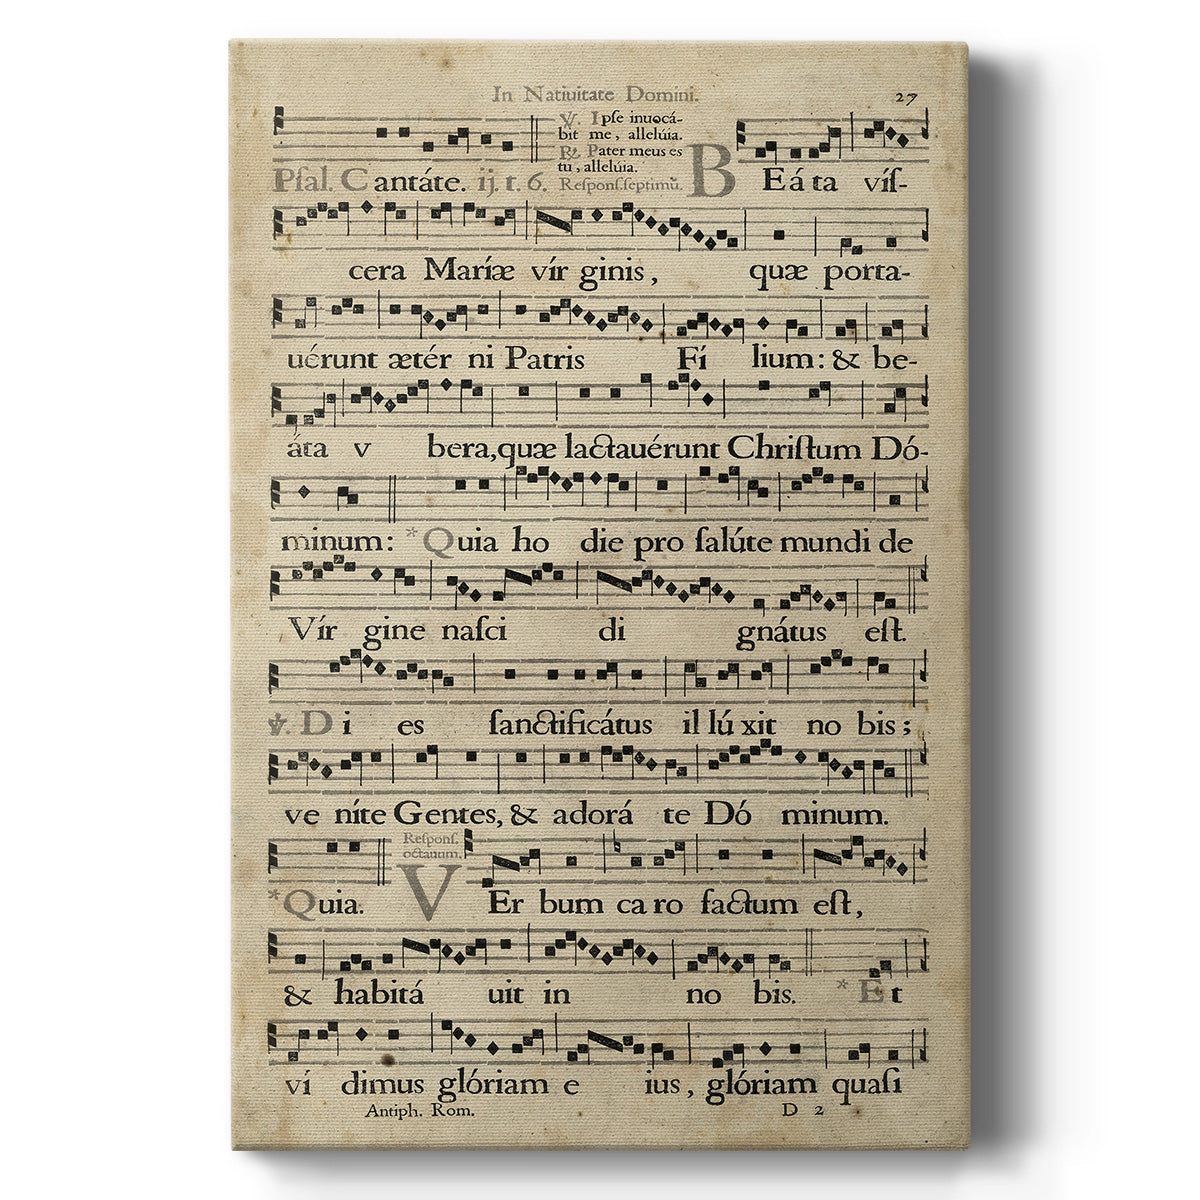 In Natiuitate Domini. 27
℣. Ipse inuocá-
bit me, allelúia.
℟. Pater meus es
tu, allelúia.
Psal. Cantáte. ij. t. 6. Respons. septimũ. BEáta víſ-
cera Maríæ vír ginis, quæ porta-
uérunt ætér ni Patris Fí lium: & be-
áta v bera, quæ lactauérunt Chriſtum Dó-
minum: * Quia ho die pro ſalúte mundi de
Vír gine naſci di gnátus eſt.
℣. Di es ſanctificátus il lú xit no bis;
ve níte Gentes, & adorá te Dó minum.
Reſponſ.
octauum.
* Quia. VEr bum ca ro factum eſt,
& habitá uit in no bis. * Et
ví dimus glóriam e ius, glóriam quaſi
Antiph. Rom. D 2